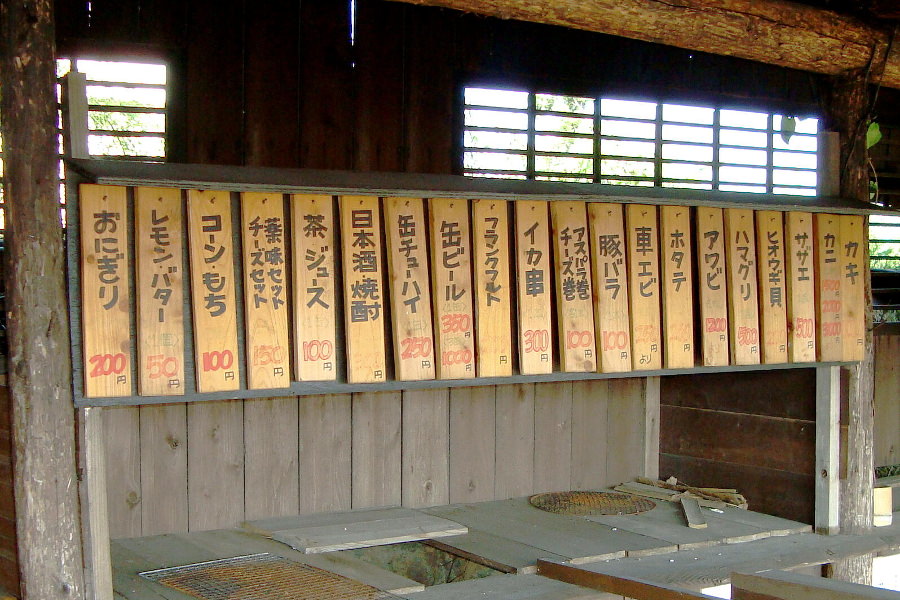 おにぎり
200円
レモン・バター
50円
コーン・もち
100円
薬味セット
チーズセット
150円
茶・ジュース
100円
日本酒・焼酎
円
缶チューハイ
250円
缶ビール
350円
1000円
フランクルト
円
イカ串
300円
アスパラ巻
チーズ巻
100円
豚バラ
100円
車エビ
円より
ホタテ
円
アワビ
1200円
ハマグリ
300円
ヒオウギ貝
円
サザエ
500円
カニ
カキ
円